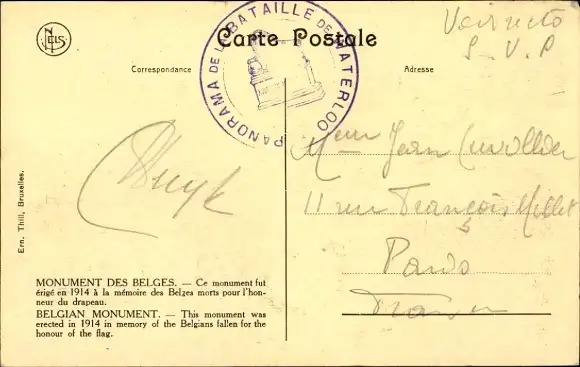 NELS
PANORAMA DE LA BATAILLE DE WATERLOO
Carte Postale
Correspondance
Adresse
S.V.P
Jean
11 rue François Millet
Paris
France
Ern. Thill, Bruxelles.
MONUMENT DES BELGES. — Ce monument fut
érigé en 1914 à la mémoire des Belges morts pour l'hon-
neur du drapeau.
BELGIAN MONUMENT. — This monument was
erected in 1914 in memory of the Belgians fallen for the
honour of the flag.